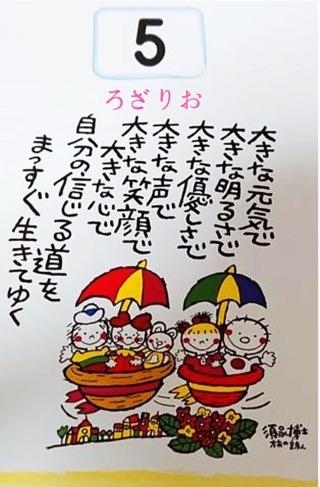 5
ろざりお
大きな元気で
大きな明るさで
大きな優しさで
大きな声で
大きな笑顔で
大きな心で
自分の信じる道を
まっすぐ生きてゆく
須永博士
旅の詩人